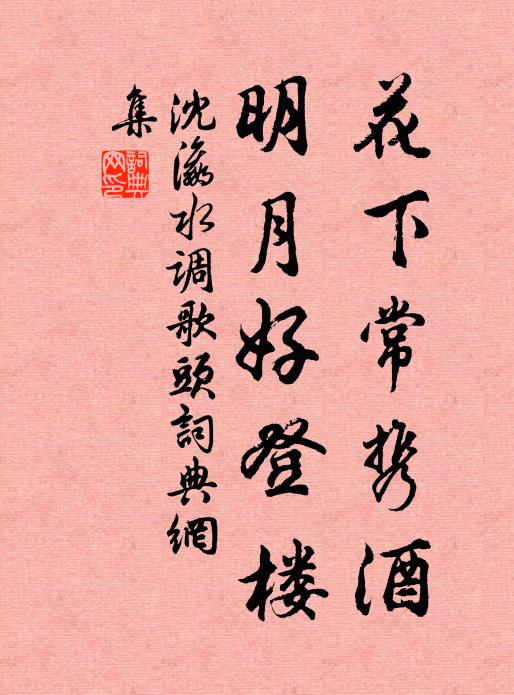 花下常携酒
明月好登楼
沈瀛水调歌頭詞典網
集
詞典
网印